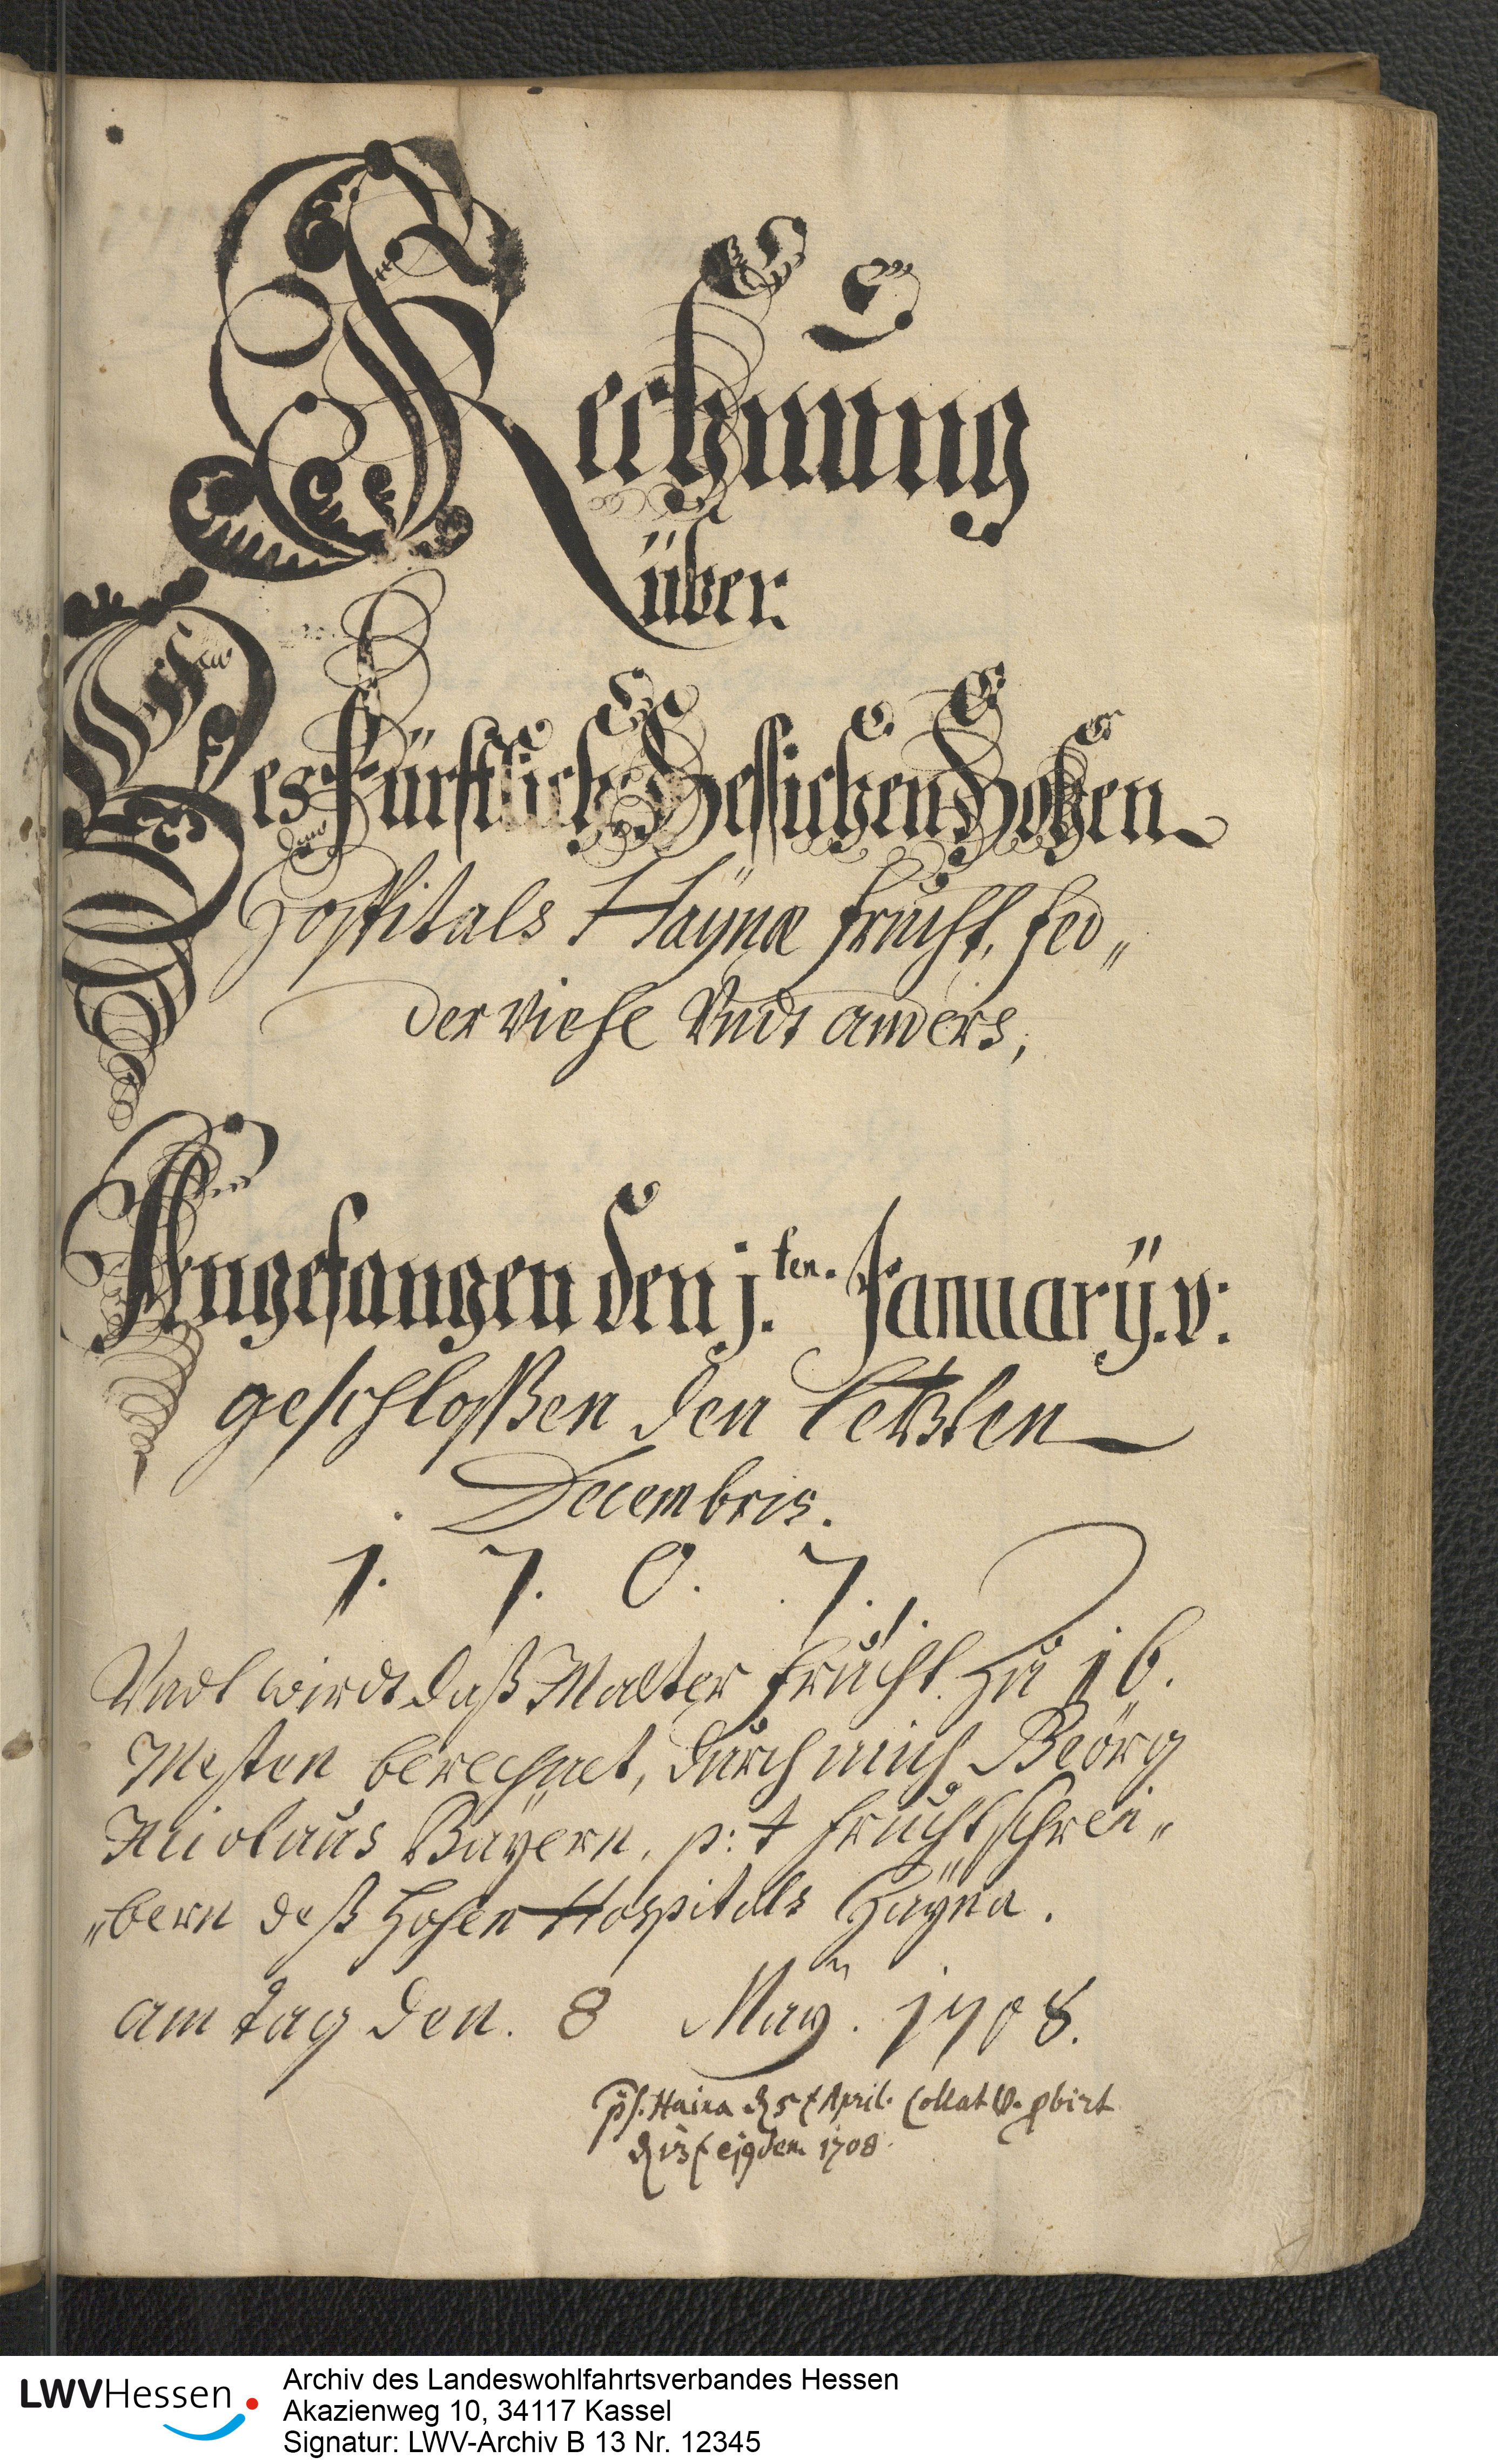 Rechnung
über
Des Fürstlich Hessichen Hohen
Hospitals Haÿnæ Frucht, Fed„
der Viehe Undt anders,
Angefangen den j.ten. Januarÿ. v:
geschloßen den letzten
Decembris.
1. 7. 0. 7.
Undt wirdt daß Malter Frucht. zu 16.
Mesten berechnet, durch mich Georg
Nicolaus Baÿern, p:t Fruchtschrei„
„bern deß Hohen Hospitals Haÿna.
am tag den. 8 Maÿ. 1708.
Haina d 5t April. Collat v. pbirt
d 13t ejgdem 1708.
LWVHessen
Archiv des Landeswohlfahrtsverbandes Hessen
Akazienweg 10, 34117 Kassel
Signatur: LWV-Archiv B 13 Nr. 12345